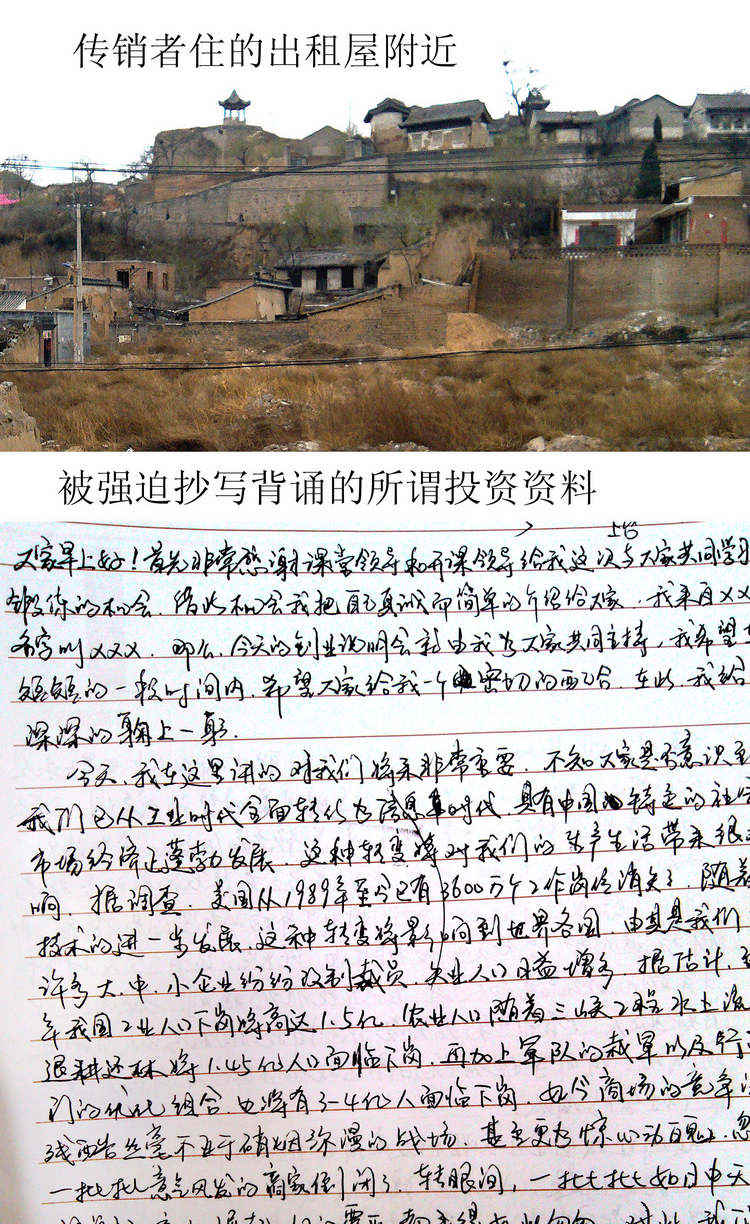 传销者住的出租屋附近
被强迫抄写背诵的所谓投资资料
大家早上好！首先非常感谢课堂领导和开课领导给我这次与大家共同学习
锻练的机会。借此机会我把自己真诚而简单的介绍给大家。我来自XX
名字叫XXX。那么，今天的创业说明会就由我为大家共同主持，我希望
短短的一段时间内，希望大家给我一个密切的配合。在此，我给
深深的鞠上一躬。
今天，我在这里讲的对我们将来非常重要。不知大家是否意识
我们已从工业时代全面转化为信息时代，具有中国特色的社
市场经济正蓬勃发展。这种转变将对我们的生产生活带来很
响。据调查，美国从1989年至今已有3600万个工作岗位消失了，随着
技术的进一步发展，这种转变将影响到世界各国，由其是我们
许多大、中、小企业纷纷改制裁员，失业人口日益增多，据估计，
年我国工业人口下岗将高达1.5亿，农业人口随着三峡工程，水土流
退耕还林将1.45亿人口面临下岗，再加上军队的裁军以及行
门的优化组合，也将有3-4亿人面临下岗，如今商场的竞争
残酷丝毫不亚于硝烟弥漫的战场，甚至更为惊心动魄，忽
一批批意气风发的商家倒闭了，转眼间，一批批如日中天